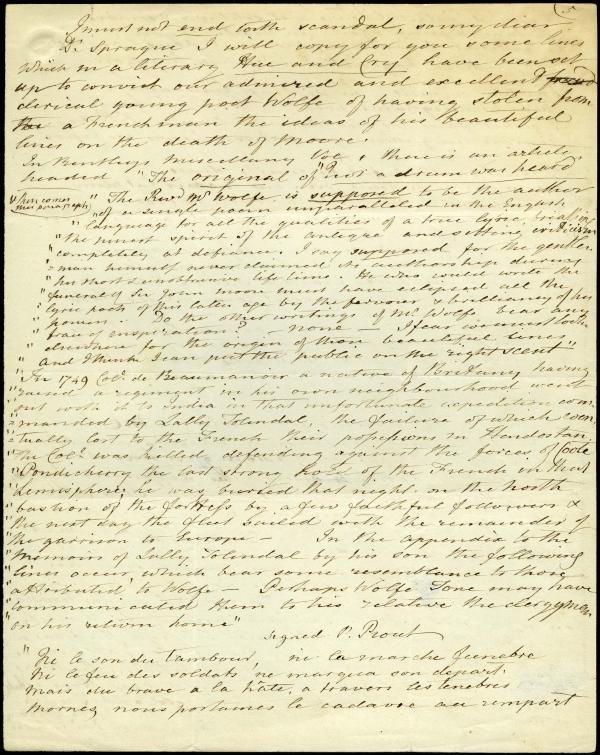 5
I must not end with scandal, so my dear
Dr Sprague I will copy for you some lines
which in a literary Hue and Cry have been set
up to convict our admired and excellent
clerical young poet Wolfe of having stolen from
the a Frenchman the ideas of his beautiful
lines on the death of Moore.
In Bentleys Miscellany Vol 1 there is an article
headed "The original of "Not a drum was heard
then comes this paragraph
"The Revd Mr Wolfe is supposed to be the author
"of a single poem unparalleled in the English
"language for all the qualities of a true lyric, breathing
"the purest spirit of the antique and setting criticism
"completely at defiance. I say supposed for the gentle-
"man himself never claimed its authorship during
"his short & unobtrusive life time. He who could write the
"funeral of Sir John Moore must have eclipsed all the
"lyric poets of this latter age by the fervour & brilliancy of his
"powers. Do the other writings of Mr Wolfe bear any
"trace of inspiration? – none – I fear we must look
"elsewhere for the origin of those beautiful lines
"and I think I can put the public on the right scent"
"In 1749 Col. de Beaumanoir a native of Brittany having
"raised a regiment in his own neighbourhood went
"out with it to India in that unfortunate expedition com-
"manded by Lally Tolendal, the failure of which even-
"tually lost to the French their possessions in Hindostan
"The Col. was killed defending against the forces of Coote
"Pondicherry the last strong hold of the French in that
"hemisphere; he was buried that night on the north
"bastion of the fortress by a few faithful followers &
"the next day the fleet sailed with the remainder of
"the garrison to Europe – In the appendix to the
"Memoirs of Lally Tolendal by his son the following
"lines occur which bear some resemblance to those
"attributed to Wolfe – Perhaps Wolfe Tone may have
"communicated them to his relative the clergyman
"on his return home"
signed P. Prout
"Ni le son du tambour, ni la marche funebre
Ni le feu des soldats ne marqua son depart.
Mais du brave a la hâte, a travers les tenebres
Mornes, nous portames le cadavre au rempart